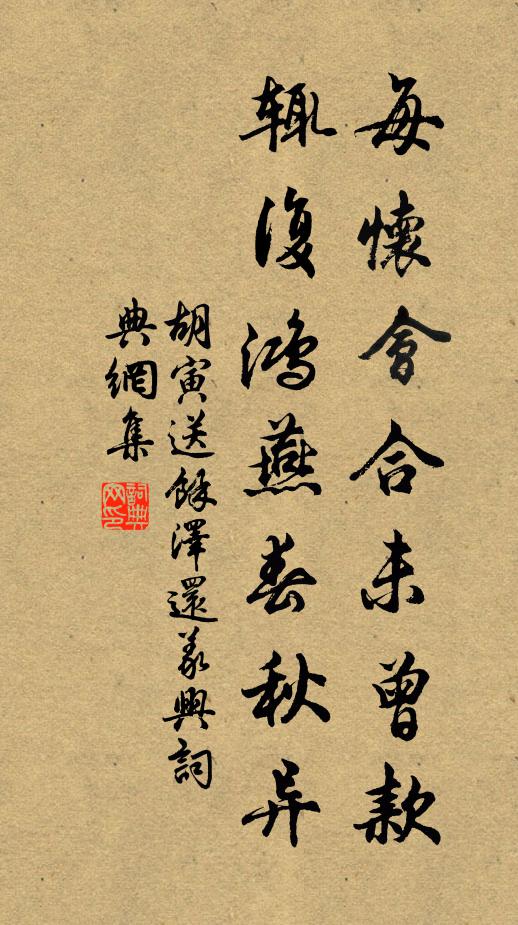 每懷會合未曾款
輒復鴻燕春秋异
胡寅送餘澤還義興詞
典網集
詞典網印